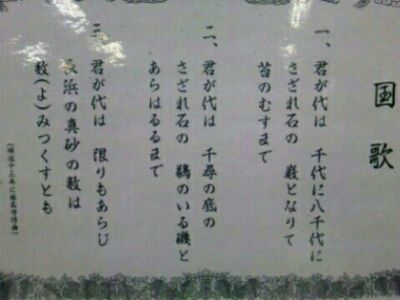 国歌
一、君が代は 千代に八千代に
さざれ石の 巌となりて
苔のむすまで
二、君が代は 千尋の底の
さざれ石の 鵜のいる磯と
あらはるるまで
三、君が代は 限りもあらじ
長浜の真砂の数は
数(よ)みつくすとも